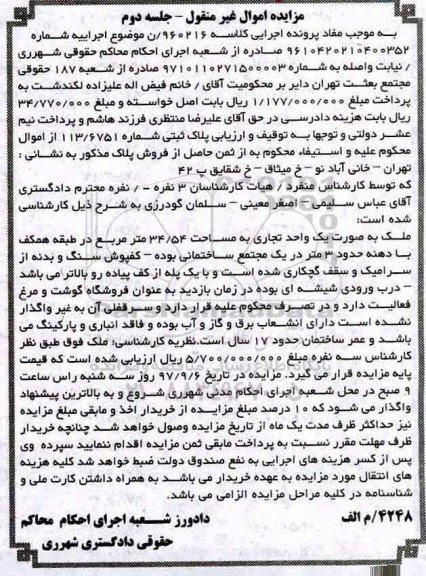 مزایده اموال غیر منقول - جلسه دوم
به موجب مفاد پرونده اجرایی کلاسه ۹۶۰۲۱۶/ن موضوع اجراییه شماره
۹۶۱۰۴۲۰۲۱۰۴۰۰۳۵۲ صادره از شعبه اجرای احکام محاکم حقوقی شهرری
/ نیابت واصله به شماره ۹۷۱۰۱۱۰۲۷۱۵۰۰۰۰۳ صادره از شعبه ۱۸۷ حقوقی
مجتمع بعثت تهران دایر بر محکومیت آقای / خانم فیض اله علیزاده لکندشت به
پرداخت مبلغ ۱/۱۷۷/۰۰۰/۰۰۰ ریال بابت اصل خواسته و مبلغ ۳۴/۷۷۰/۰۰۰
ریال بابت هزینه دادرسی در حق آقای علیرضا منتظری فرزند هاشم و پرداخت نیم
عشر دولتی و توجها به توقیف و ارزیابی پلاک ثبتی شماره ۱۱۳/۶۷۵۱ از اموال
محکوم علیه و استیفاء محکوم به از ثمن حاصل از فروش پلاک مذکور به نشانی :
تهران – خانی آباد نو – خ میثاق – خ شقایق پ ۴۲
که توسط کارشناس منفرد / هیات کارشناسان ۳ نفره - / نفره محترم دادگستری
آقای عباس سلیمی – اصغر معینی – سلمان گودرزی به شرح ذیل کارشناسی
شده است:
ملک به صورت یک واحد تجاری به مساحت ۳۴/۵۴ متر مربع در طبقه همکف
با دهنه حدود ۳ متر در یک مجتمع ساختمانی بوده – کفپوش سنگ و بدنه از
سرامیک و سقف گچکاری شده است و با یک پله از کف پیاده رو بالاتر می باشد
– درب ورودی شیشه ای بوده در زمان بازدید به عنوان فروشگاه گوشت و مرغ
فعالیت دارد و در تصرف محکوم علیه قرار دارد و سرقفلی آن به غیر واگذار
نشده است دارای انشعاب برق و گاز و آب بوده و فاقد انباری و پارکینگ می
باشد و عمر ساختمان حدود ۱۷ سال است.نظریه کارشناسی: ملک فوق طبق نظر
کارشناس سه نفره مبلغ ۵/۷۰۰/۰۰۰/۰۰۰ ریال ارزیابی شده است که قیمت
پایه مزایده قرار می گیرد. مزایده در تاریخ ۹۷/۹/۶ روز سه شنبه راس ساعت
۹ صبح در محل شعبه اجرای احکام مدنی شهرری شروع و به بالاترین پیشنهاد
واگذار می شود که ۱۰ درصد مبلغ مزایده از خریدار اخذ و مابقی مبلغ مزایده
نیز حداکثر ظرف مدت یک ماه از تاریخ مزایده وصول خواهد شد چنانچه خریدار
ظرف مهلت مقرر نسبت به پرداخت مابقی ثمن مزایده اقدام ننمایید سپرده وی
پس از کسر هزینه های اجرایی به نفع صندوق دولت ضبط خواهد شد کلیه هزینه
های انتقال مورد مزایده به عهده خریدار می باشد به همراه داشتن کارت ملی و
شناسنامه در کلیه مراحل مزایده الزامی می باشد.
۴۲۴۸/م الف
دادورز شعبه اجرای احکام محاکم
حقوقی دادگستری شهرری